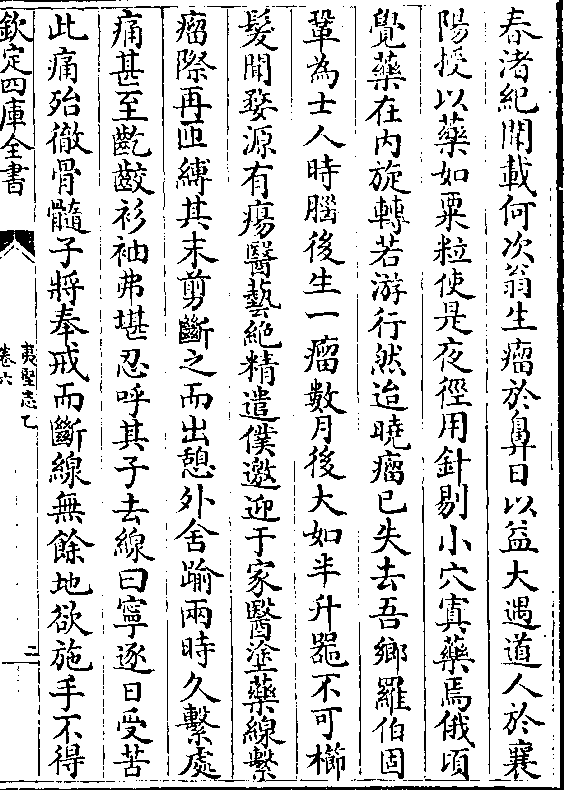 春渚紀聞載何次翁生瘤於鼻日以益大遇道人於襄
陽授以藥如粟粒使是夜徑用針剔小穴寘藥焉俄頃
覺藥在内旋轉若游行然迨曉瘤已失去吾鄉羅伯固
鞏為士人時腦後生一瘤數月後大如半升器不可櫛
髮聞婺源有瘍醫藝絶精遣僕邀迎于家醫塗藥線繫
瘤際再匝縛其末剪斷之而出憩外舍踰兩時久繫處
痛甚至齕齩衫袖弗堪忍呼其子去線曰寧逐日受苦
此痛殆徹骨髓子將奉戒而斷線無餘地欲施手不得
欽定四庫全書
夷堅志乙
卷六
二